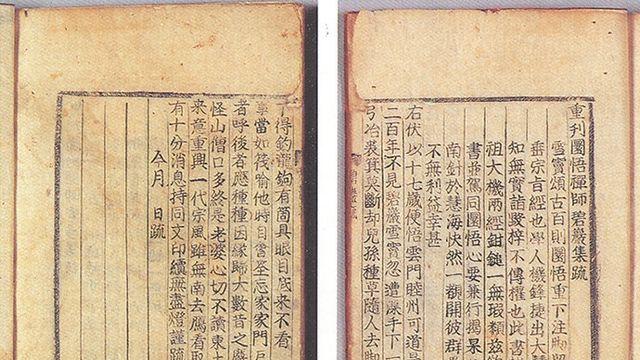 重刊圜悟禪師碧巖集疏
雪竇頌古百則圜悟重下注脚
垂宗旨經也學人機鋒捷出大
知無實詣毀梓不傳攉也此書
祖大機兩經鉗鎚一無瑕類茲
書並駕同圜悟心要兼行揭杲
南針於慧海快然一覩開彼群
不無利益幸甚
右伏以十七歲便悟雲門睦州可道是
二百年不見碧巖雪竇忽遭濼手下一
弓冶裘箕莫斷却兒孫種草隨人去
了得釣龍鉤有箇具眼目底來不看
事當如筏喻他時自當坐忘家家門戶
者呼後者應種種因緣歸大數昔之廢
怪山僧口多終是老婆心切不讀東土
來意重興一代宗風雖無南去鴈看取
有十分消息持同文印續無盡燈謹疏
今月 日疏